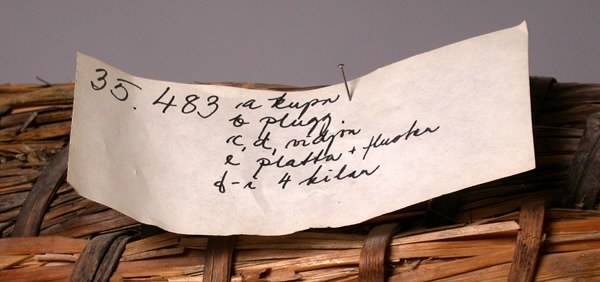 35.483 a kupa
b plugg.
c, d, vidjor
e platta + fluster
f-i 4 kilar